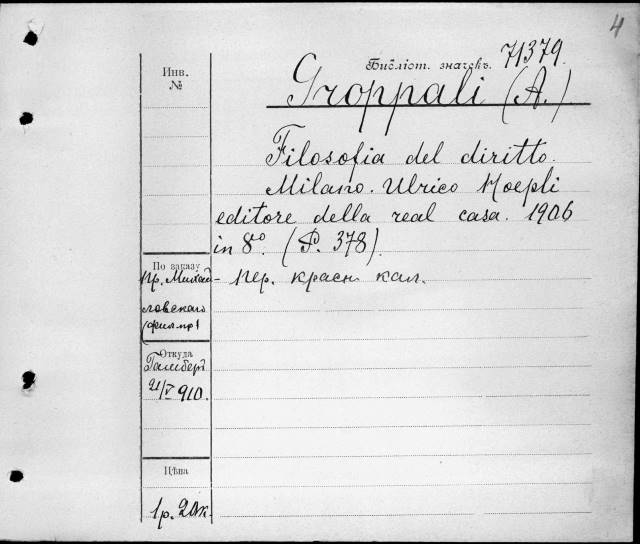 4
Библіот. значекъ. 71379.
Инв.
№
Groppali (A.)
Filosofia del diritto.
Milano. Ulrico Hoepli
editore della real casa. 1906
in 8º. (P. 378).
По заказу
пр. Михай-
ловскаго
пер. красн. кал.
Откуда
21/V 910.
Цѣна
1р. 20к.